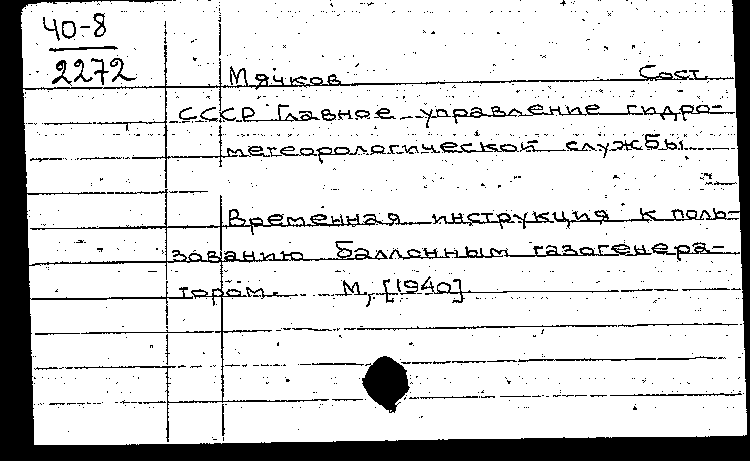 40-8
2272
Мячков Сост.
СССР Главное управление гидро-
метеорологической службы
Временная инструкция к поль-
зованию баллонным газогенера-
тором. М, [1940].